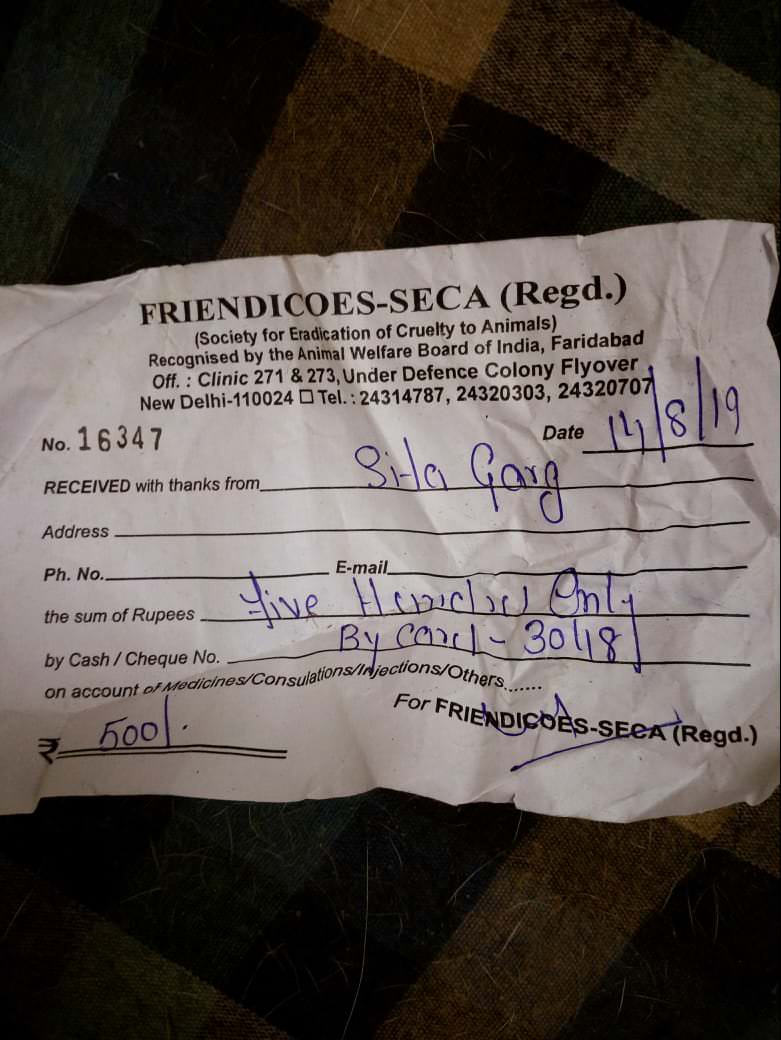 FRIENDICOES-SECA (Regd.)
(Society for Eradication of Cruelty to Animals)
Recognised by the Animal Welfare Board of India, Faridabad
Off. : Clinic 271 & 273, Under Defence Colony Flyover
New Delhi-110024 □ Tel. : 24314787, 24320303, 24320707
No. 16347 Date 14/8/19
RECEIVED with thanks from Sita Garg
Address
Ph. No. E-mail
the sum of Rupees Five Hundred Only
by Cash / Cheque No. By Card -
on account of Medicines/Consulations/Injections/Others.......
For FRIENDICOES-SECA (Regd.)
₹ 500/-